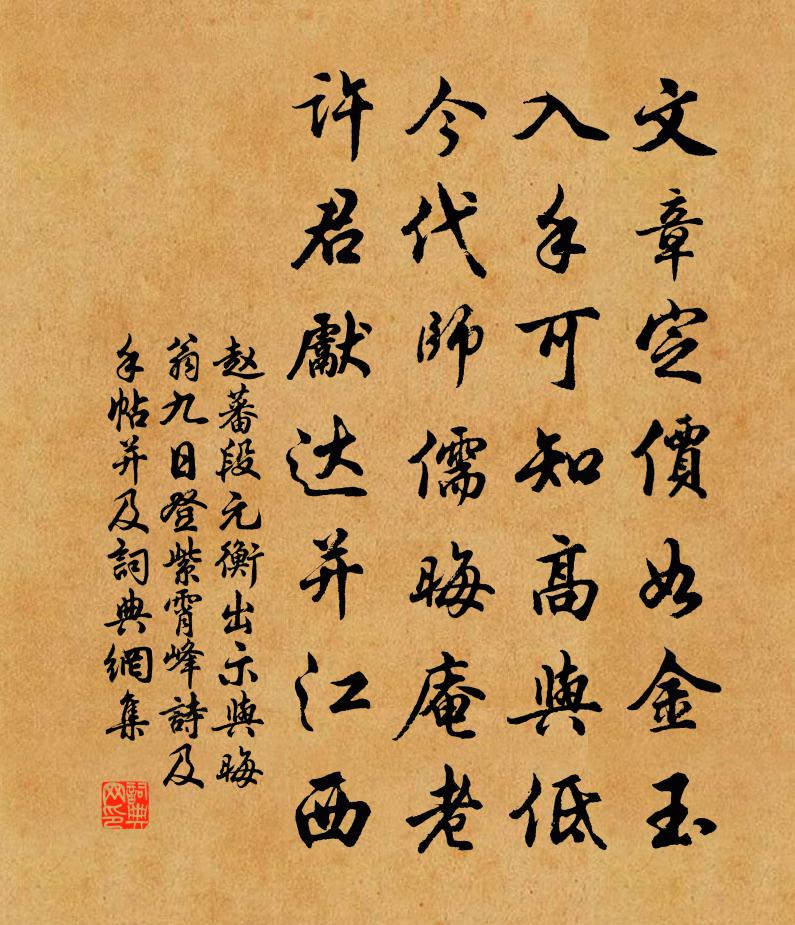 文章定價如金玉
入手可知高與低
今代師儒晦庵老
許君獻达并江西
赵蕃段元衡出示與晦
翁九日登紫霄峰詩及
手帖并及詞典網集
詞典网印